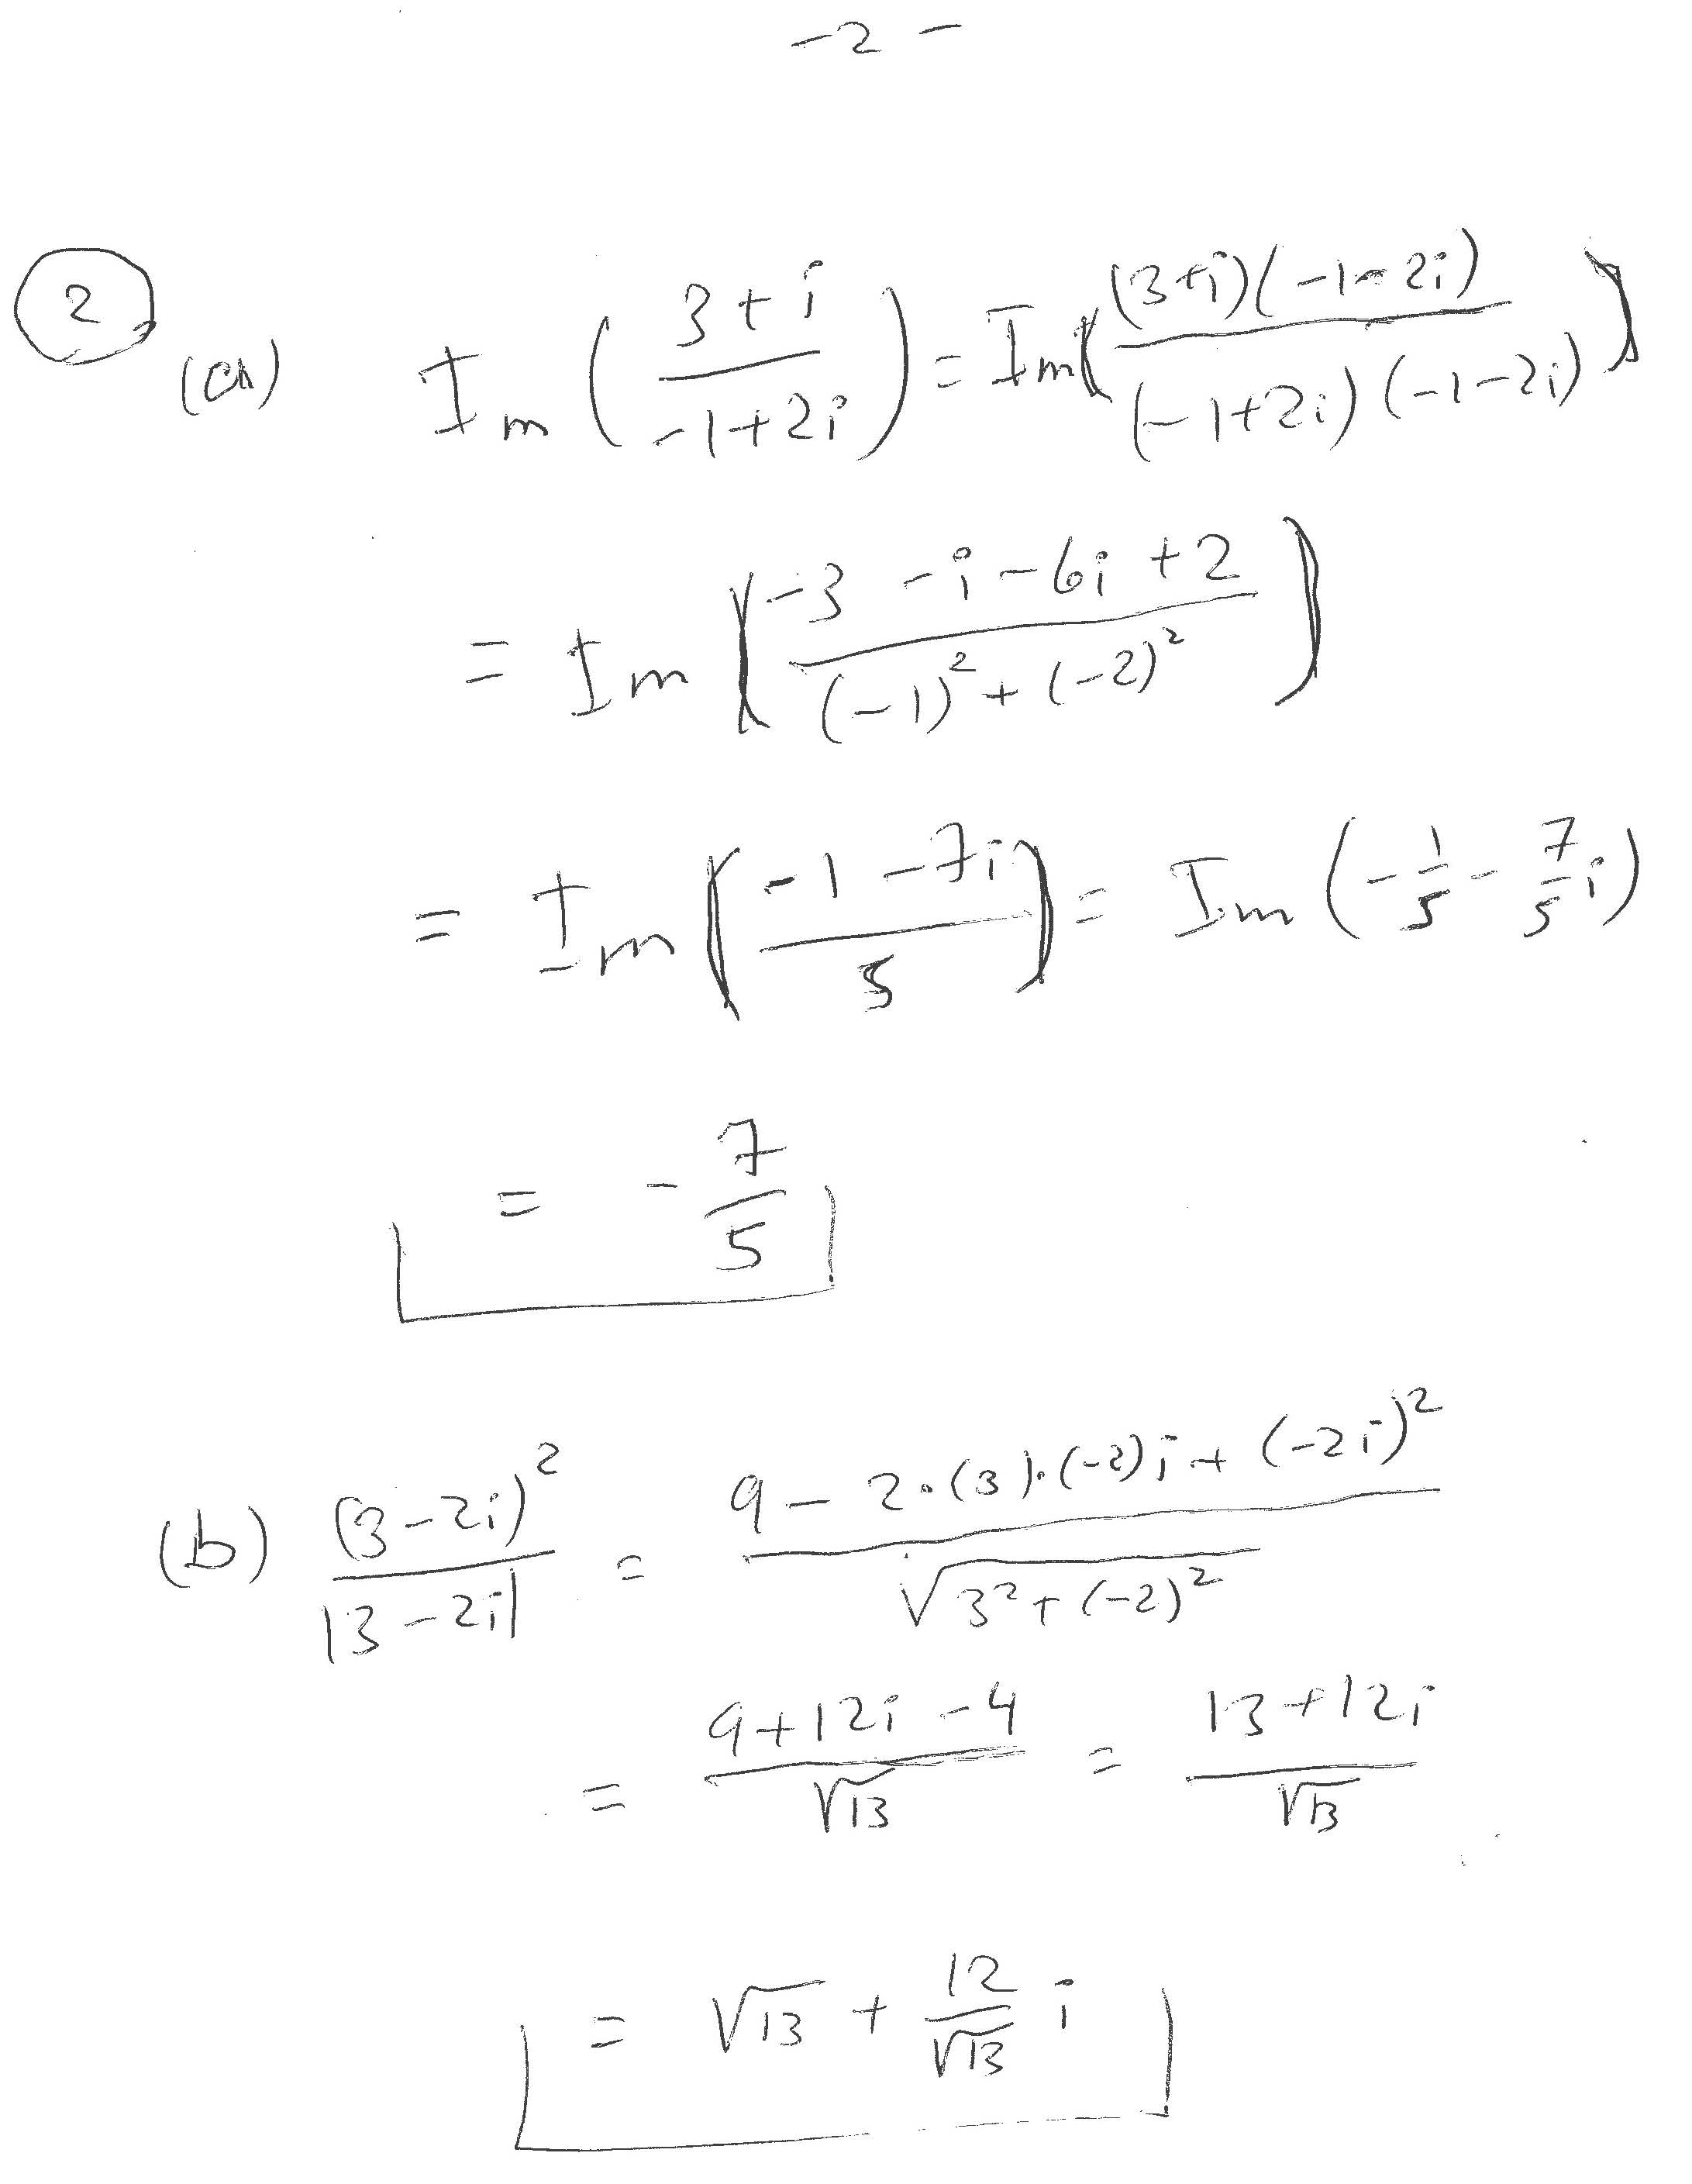 - 2 -
② (a) Im ( (3+i) / (-1+2i) ) = Im ( (3+i)(-1-2i) / (-1+2i)(-1-2i) )
= Im ( (-3 -i -6i +2) / ((-1)² + (-2)²) )
= Im ( (-1-7i) / 5 ) = Im ( -1/5 - 7/5 i )
= - 7/5
(b) (3-2i)² / |3-2i| = (9 - 2·(3)·(-2)i + (-2i)²) / √(3² + (-2)²)
= (9+12i-4) / √13 = (13+12i) / √13
= √13 + 12/√13 i